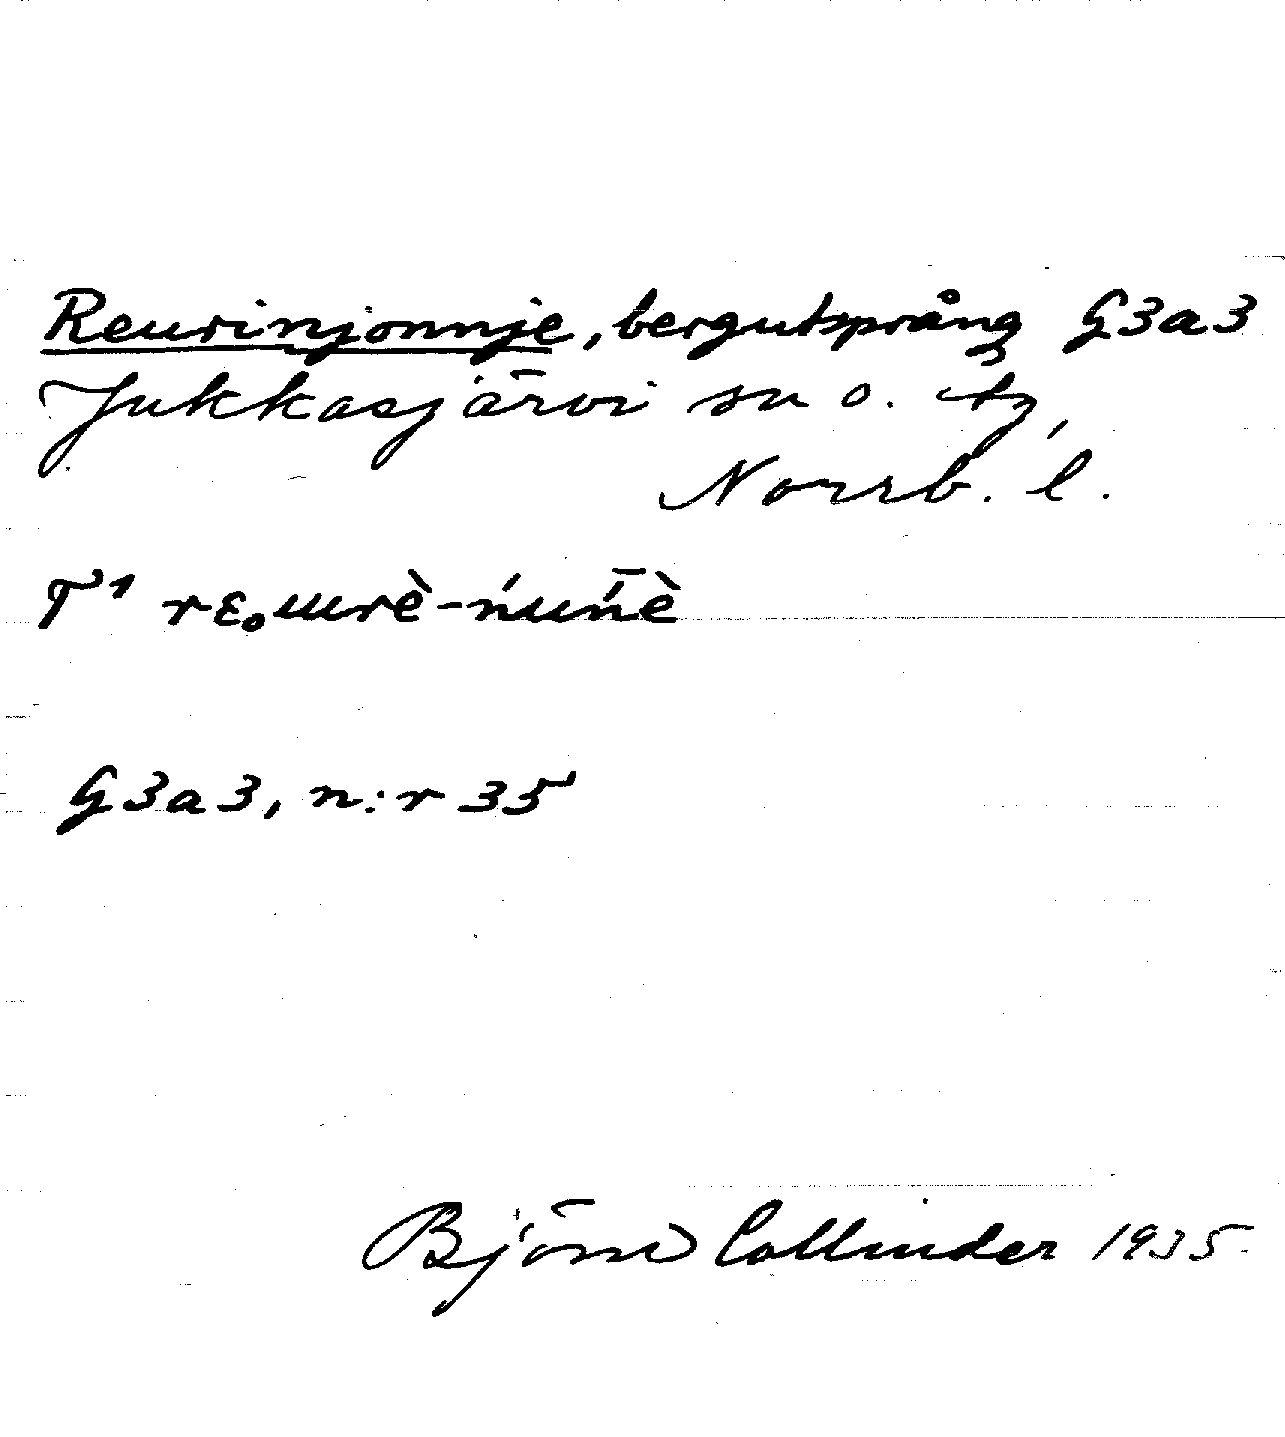 Reurinjonnje, bergutsprång G3a3
Jukkasjärvi sn o. tg,
Norrb. l.
T¹ rɛ₀ɯrè-ńuńè
G3a3, n:r 35
Björn Collinder 1935.